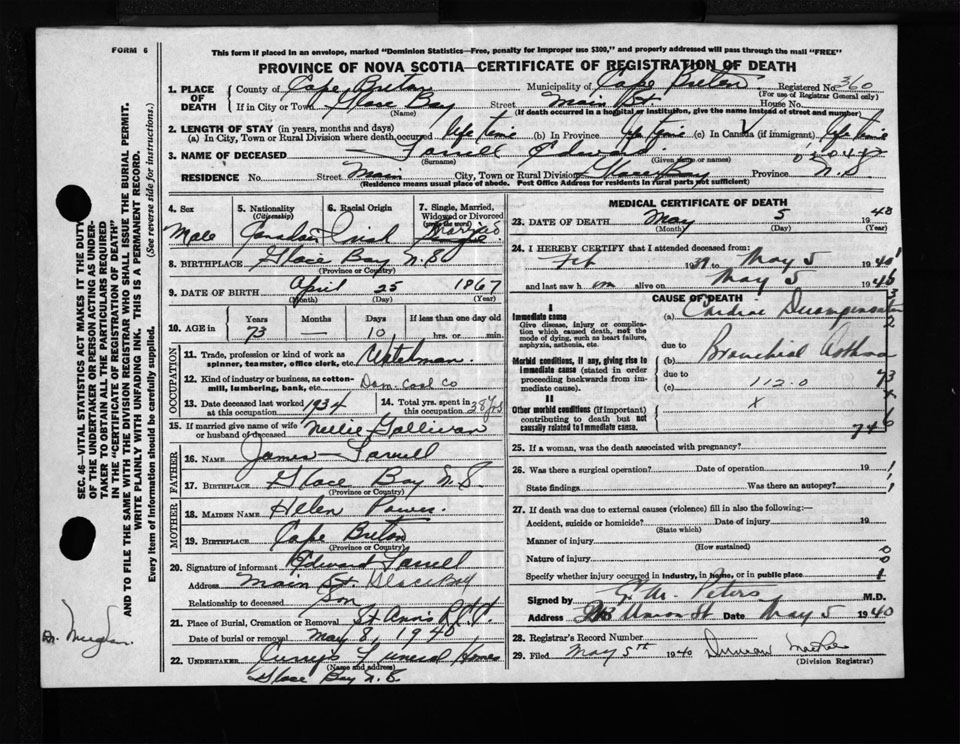 FORM 6
This form if placed in an envelope, marked "Dominion Statistics—Free, penalty for improper use $300," and properly addressed will pass through the mail "FREE"
PROVINCE OF NOVA SCOTIA—CERTIFICATE OF REGISTRATION OF DEATH
1. PLACE OF DEATH County of Cape Breton Municipality of Cape Breton Registered No. 360
(For use of Registrar General only)
If in City or Town Glace Bay Street Main St. House No.
(Name) (If death occurred in a hospital or institution, give the name instead of street and number)
2. LENGTH OF STAY (in years, months and days)
(a) In City, Town or Rural Division where death occurred life time (b) In Province life time (c) In Canada (if immigrant) life time
3. NAME OF DECEASED Farrell Edward
(Surname) (Given name or names)
RESIDENCE No. Street Main City, Town or Rural Division Glace Bay Province N.S.
(Residence means usual place of abode. Post Office Address for residents in rural parts not sufficient)
4. Sex 5. Nationality (Citizenship) 6. Racial Origin 7. Single, Married, Widowed or Divorced (write the word)
Male Canadian Irish Married
8. BIRTHPLACE Glace Bay N.S.
(Province or Country)
9. DATE OF BIRTH April 25 1867
(Month) (Day) (Year)
10. AGE in Years Months Days If less than one day old
73 — 10 hrs. or min.
OCCUPATION
11. Trade, profession or kind of work as spinner, teamster, office clerk, etc.
12. Kind of industry or business, as cotton-mill, lumbering, bank, etc. Dom. Coal Co
13. Date deceased last worked at this occupation 1934 14. Total yrs. spent in this occupation 28 yrs
15. If married give name of wife or husband of deceased Nellie Gallivan
FATHER
16. Name James Farrell
17. Birthplace Glace Bay N.S.
(Province or Country)
MOTHER
18. Maiden Name Helen Power
19. Birthplace Cape Breton
(Province or Country)
20. Signature of informant Edward Farrell
Address Main St. Glace Bay
Relationship to deceased Son
21. Place of Burial, Cremation or Removal St Ann's R.C.
Date of burial or removal May 8, 1940
22. Undertaker Curry's Funeral Home
(Name and address)
Glace Bay N.S.
MEDICAL CERTIFICATE OF DEATH
23. DATE OF DEATH May 5 1940
(Month) (Day) (Year)
24. I HEREBY CERTIFY that I attended deceased from:
Feb 1939 to May 5 1940
and last saw h im alive on May 5 1940
CAUSE OF DEATH
I
Immediate cause
Give disease, injury or complication which caused death, not the mode of dying, such as heart failure, asphyxia, asthenia, etc.
(a) Cardiac Decompensation
due to
Morbid conditions, if any, giving rise to immediate cause (stated in order proceeding backwards from immediate cause).
(b) Bronchial Asthma
due to
(c) 112.0
II
Other morbid conditions (if important) contributing to death but not causally related to immediate cause.
x
25. If a woman, was the death associated with pregnancy?
26. Was there a surgical operation? Date of operation 19
State findings Was there an autopsy?
27. If death was due to external causes (violence) fill in also the following:—
Accident, suicide or homicide? Date of injury 19
(State which)
Manner of injury
(How sustained)
Nature of injury
Specify whether injury occurred in industry, in home, or in public place
Signed by Peters M.D.
Address Union St Date May 5 1940
28. Registrar's Record Number
29. Filed May 5th 1940
(Division Registrar)
SEC. 46—VITAL STATISTICS ACT MAKES IT THE DUTY OF THE UNDERTAKER OR PERSON ACTING AS UNDERTAKER TO OBTAIN ALL THE PARTICULARS REQUIRED IN THE "CERTIFICATE OF REGISTRATION OF DEATH" AND TO FILE THE SAME WITH THE DIVISION REGISTRAR WHO SHALL ISSUE THE BURIAL PERMIT.
WRITE PLAINLY WITH UNFADING INK. THIS IS A PERMANENT RECORD.
Every item of information should be carefully supplied. (See reverse side for instructions.)